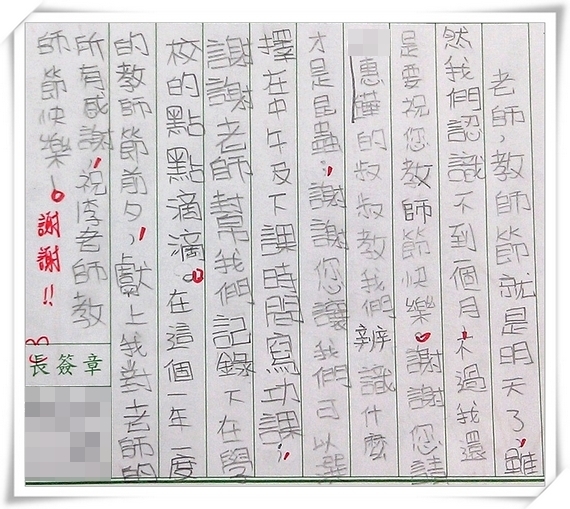 老師,教師節就是明天了,雖
然我們認識不到一個月,不過我還
是要祝您教師節快樂。謝謝您請
惠華的叔叔教我們辨識什麼
才是昆蟲;謝謝您讓我們可以選
擇在中午及下課時間寫功課;
謝謝老師幫我們記錄下在學
校的點點滴滴。在這個一年一度
的教師節前夕,獻上我對老師的
所有感謝,祝李老師教
師節快樂!。謝謝!!
長簽章